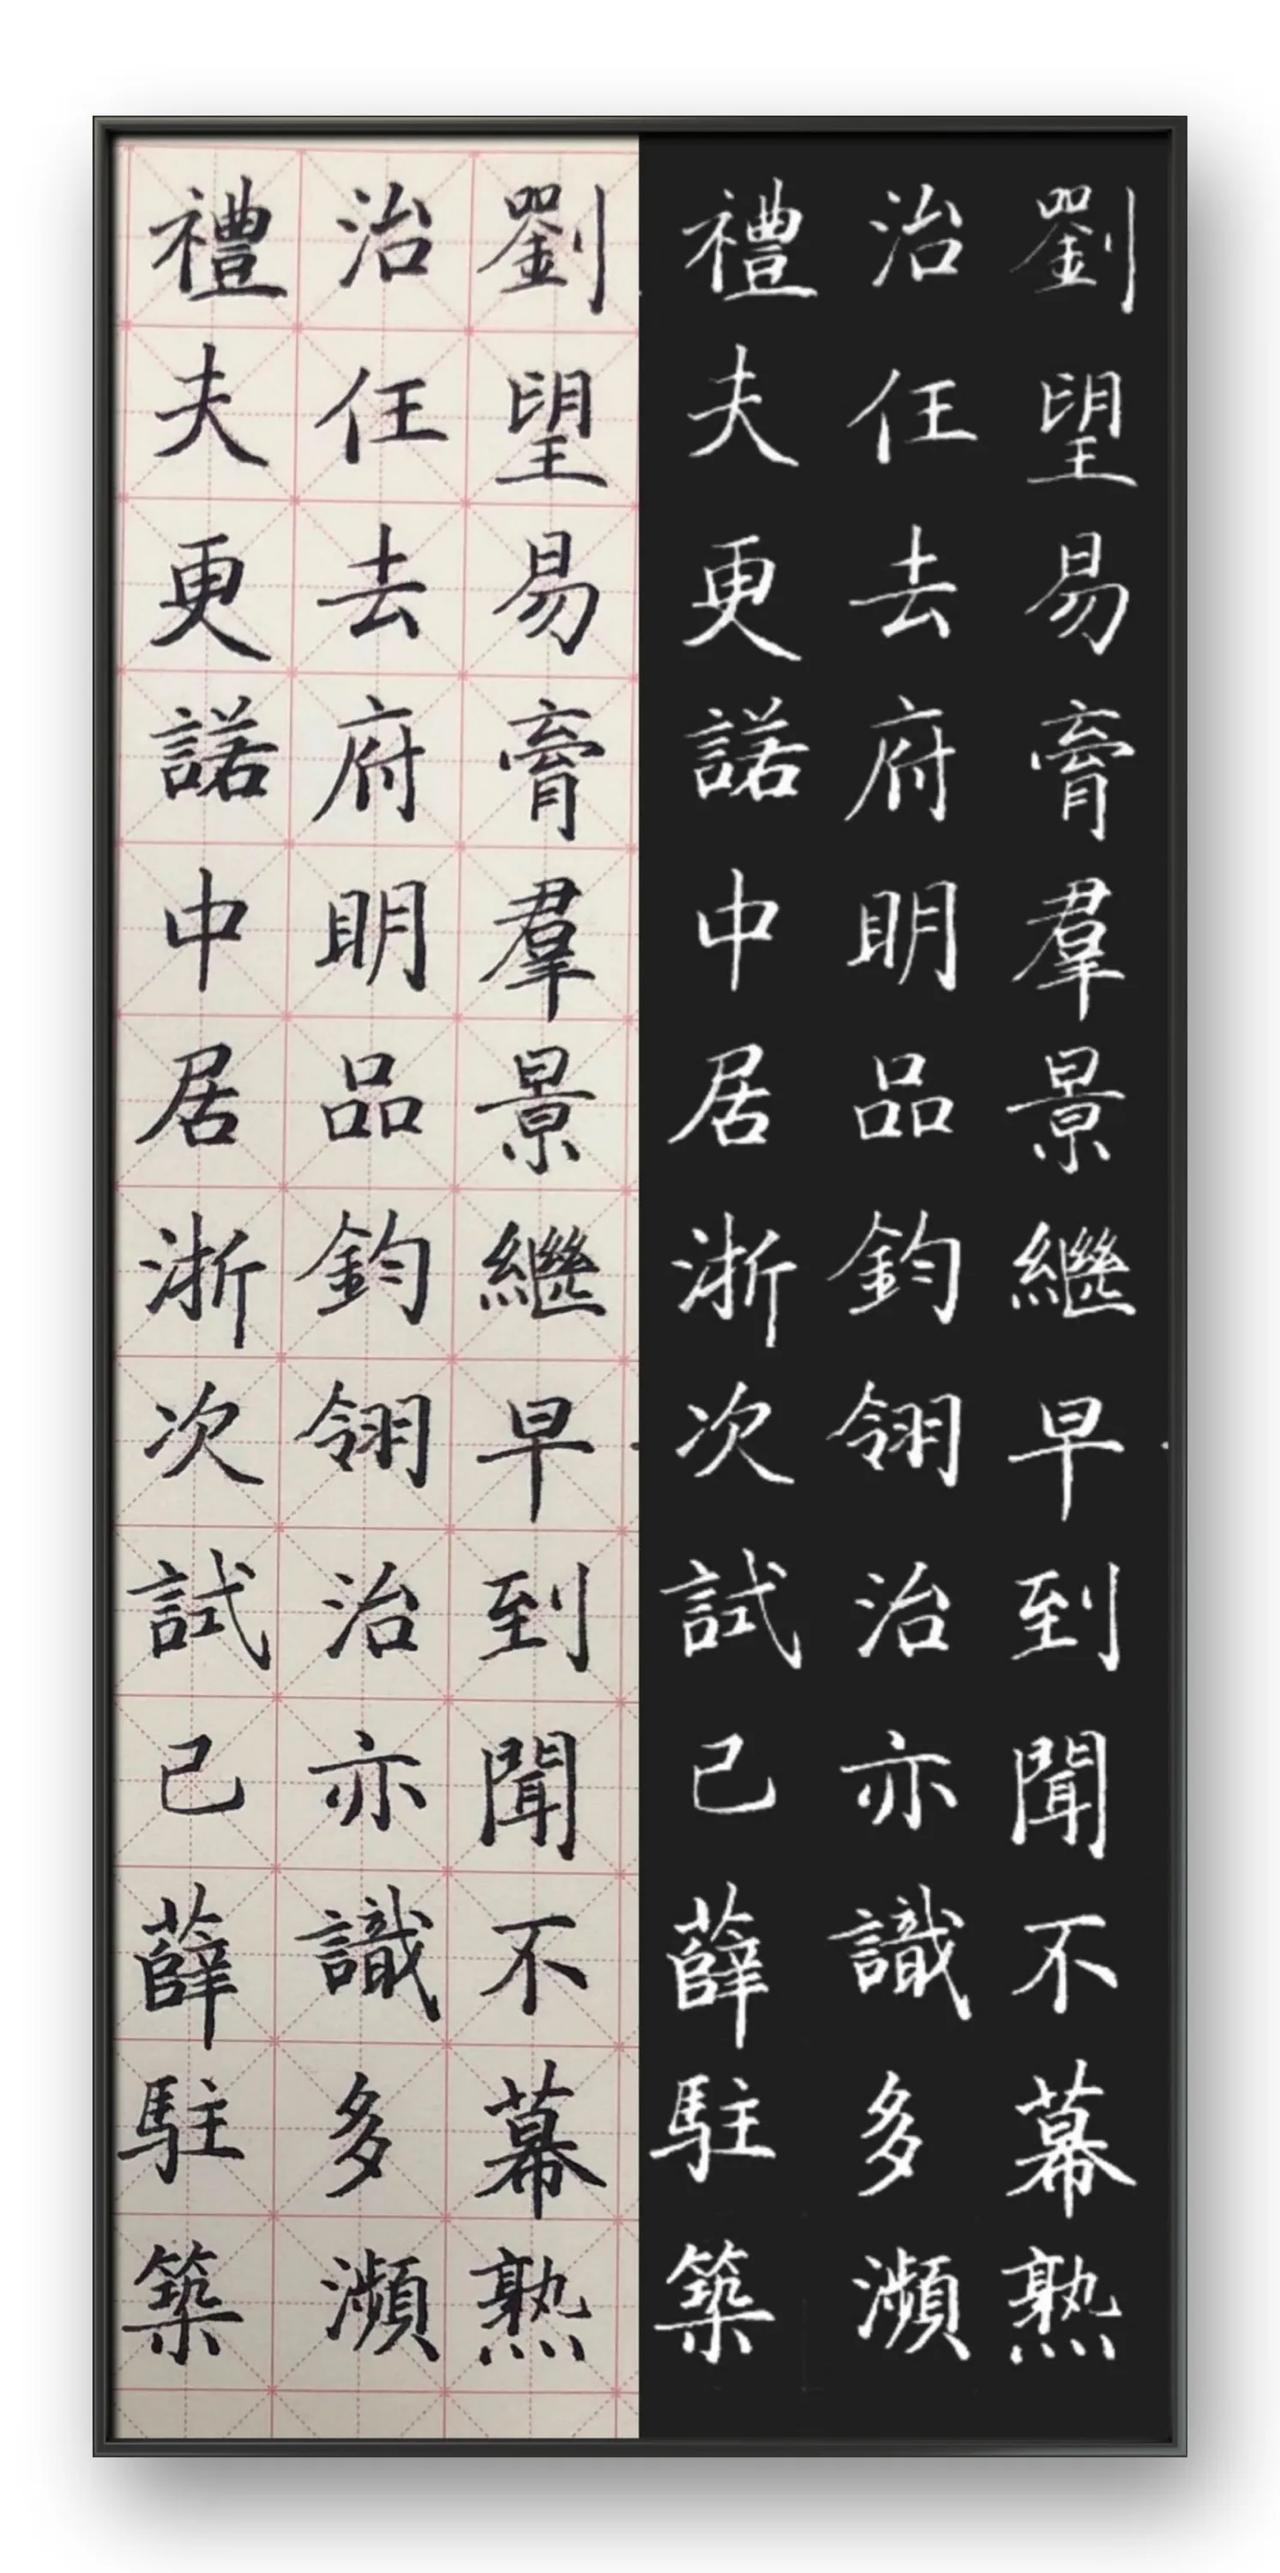 劉望易膏羣景繼早到聞不幕熟
治任去府明品鈞翎治亦識多瀕
禮夫更諾中居浙次試己薛駐築
劉望易膏羣景繼早到聞不幕熟
治任去府明品鈞翎治亦識多瀕
禮夫更諾中居浙次試己薛駐築